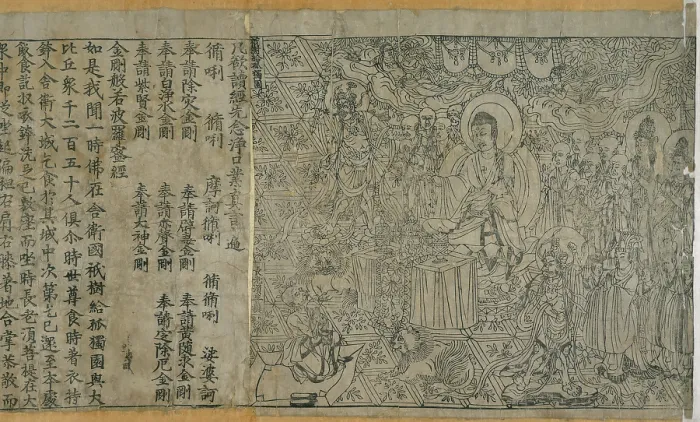 凡欲讀經先念淨口業真言一遍
脩唎 脩唎 摩訶脩唎 脩脩唎 娑婆訶
奉請除灾金剛 奉請辟毒金剛 奉請黃隨求金剛
奉請白淨水金剛 奉請赤聲金剛 奉請定除厄金剛
奉請紫賢金剛 奉請大神金剛
金剛般若波羅蜜經
如是我聞一時佛在舍衛國祇樹給孤獨園與大
比丘衆千二百五十人俱尒時世尊食時著衣持
鉢入舍衛大城乞食於其城中次第乞已還至本處
飯食訖收衣鉢洗足已敷座而坐時長老須菩提在大
衆中即從坐起偏袒右肩右膝著地合掌恭敬而